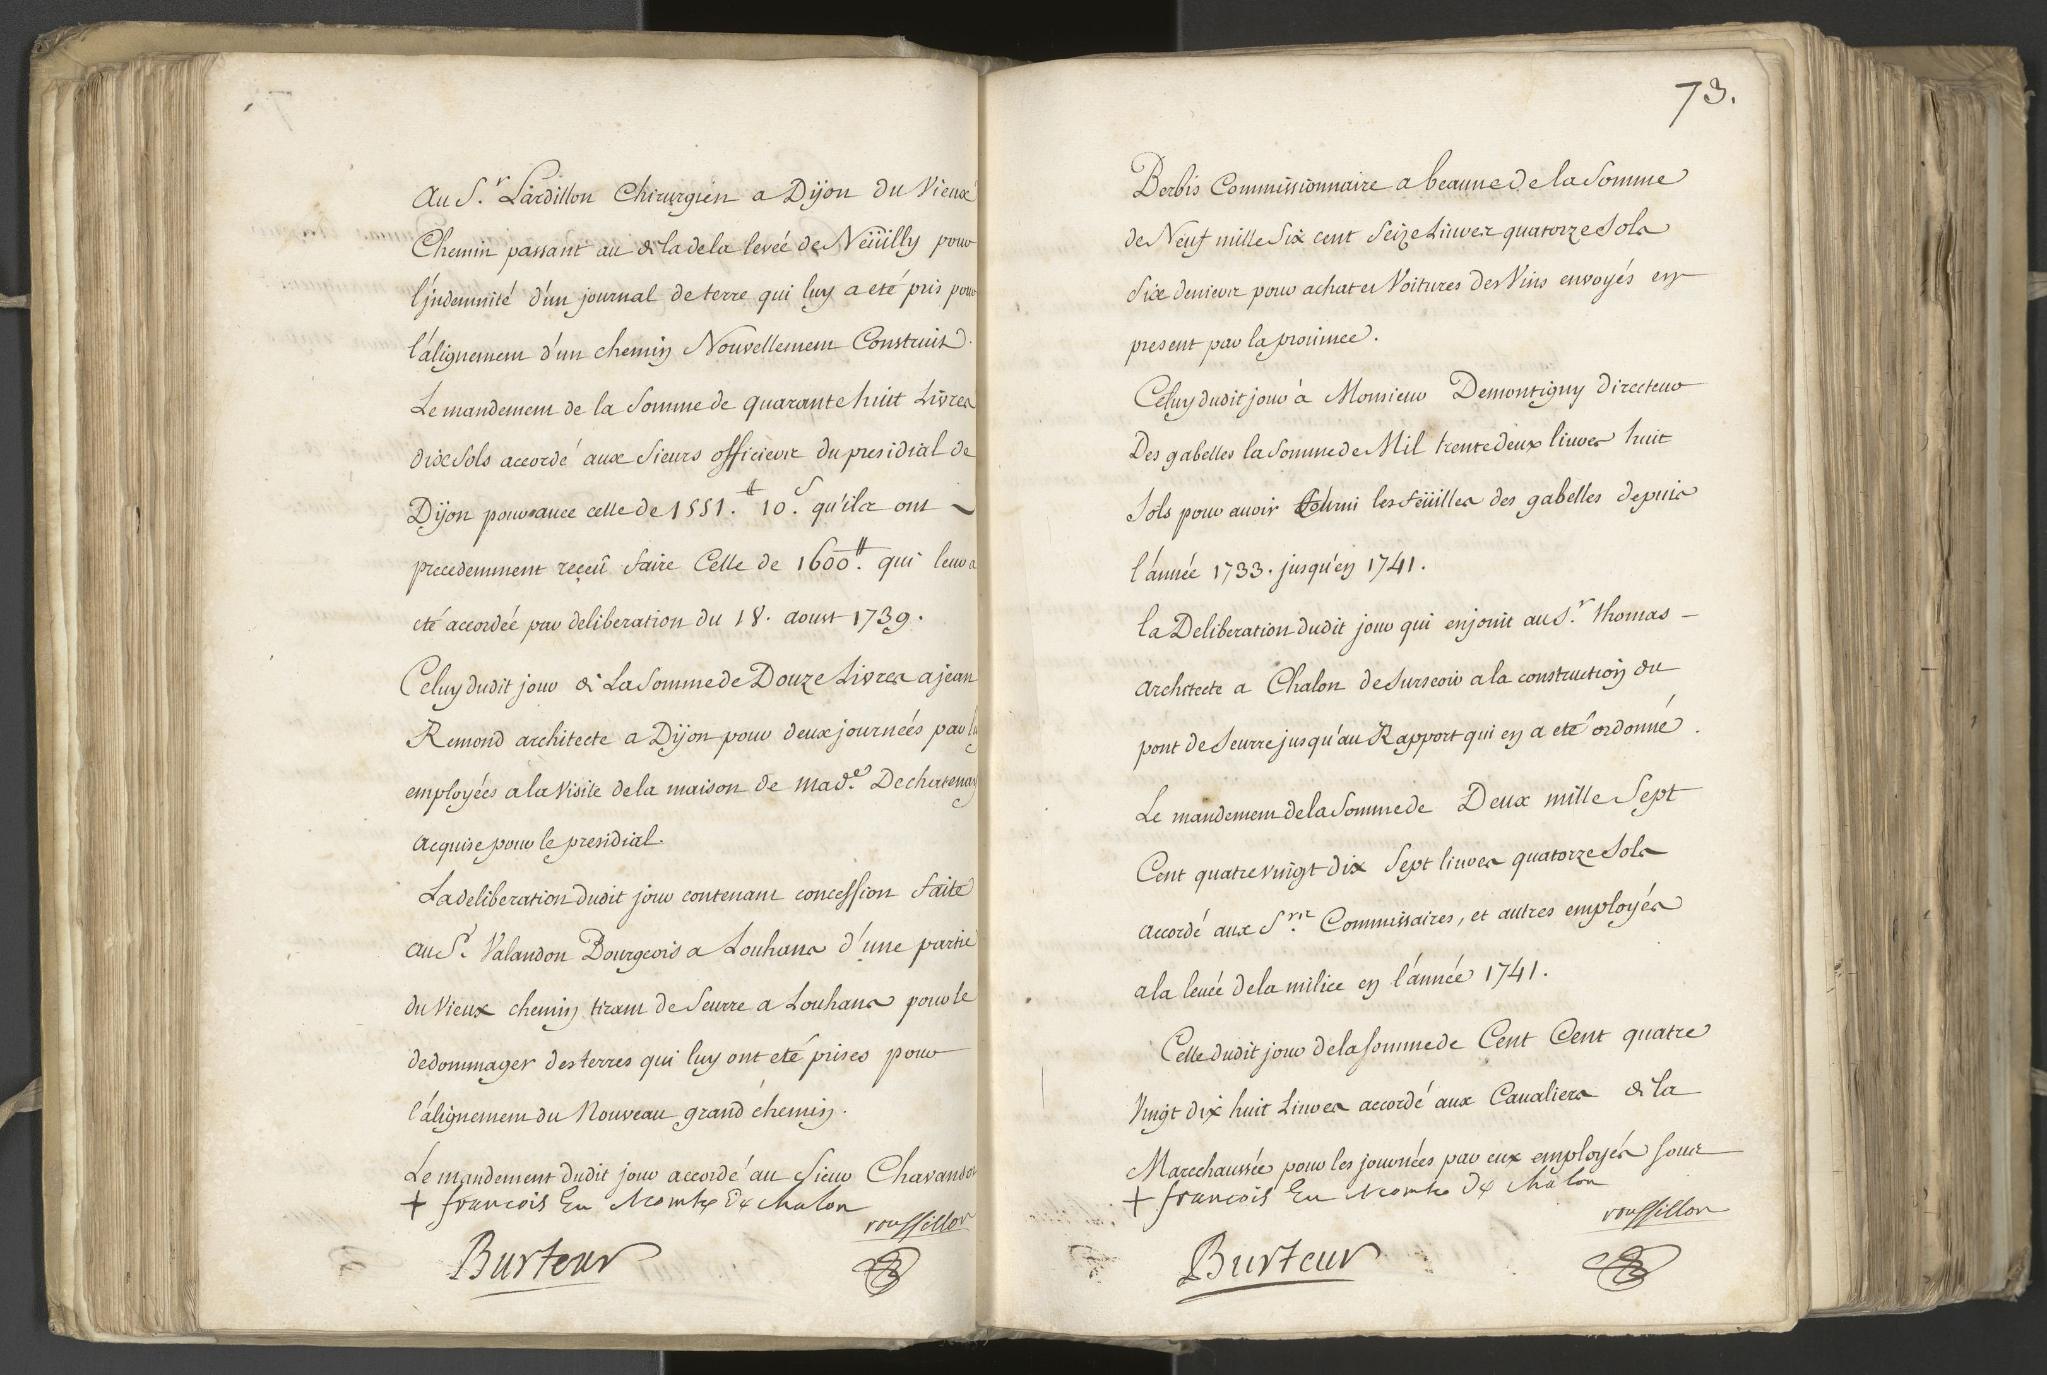 Au S.r Lardillon Chirurgien a Dijon du Vieux
Chemin passant au dela de la levée de Neüilly pour
l'jndemnité d'un journal de terre qui luy a eté pris pour
l'alignement d'un chemin Nouvellement Construit.
Le mandement de la somme de quarante huit Livres
dix sols accordé aux Sieurs officiers du presidial de
Dijon pour avec celle de 1551.tt 10.s qu'ils ont
precedemment reçeû faire Celle de 1600.tt qui leur a
eté accordée par deliberation du 18. aoust 1739.
Celuy dudit jour de La somme de Douze Livres a jean
Remond architecte a Dijon pour deux journées par luy
employées a la visite de la maison de mad.e Dechatenay
acquise pour le presidial.
La deliberation dudit jour contenant concession faite
au S.r Valandon Bourgeois a Louhans d'une partie
du Vieux chemin tirant de Seurre a Louhans pour le
dedommager des terres qui luy ont eté prises pour
l'alignement du Nouveau grand chemin.
Le mandement dudit jour accordé au Sieur Chavandon
+ françois Ev Ncomte de Chalon
roussillon
Burteur
73.
Berbis Commissionnaire a beaune de la Somme
de Neuf mille Six cent Seize Livres quatorze Sols
Six deniers pour achat et Voitures des Vins envoyés en
present par la province.
Celuy dudit jour à Monsieur Demontigny directeur
Des gabelles la Somme de Mil trente deux livres huit
Sols pour avoir fourni les feüilles des gabelles depuis
l'année 1733. jusqu'en 1741.
la Deliberation dudit jour qui enjoint au S.r Thomas
architecte a Chalon de Surseoir a la construction du
pont de Seurre jusqu'au Rapport qui en a eté ordonné.
Le mandement de la Somme de Deux mille Sept
Cent quatre vingt dix Sept livres quatorze Sols
accordé aux S.rs Commissaires, et autres employés
a la levée de la milice en l'année 1741.
Celle dudit jour de la somme de Cent Cent quatre
Vingt dix huit Livres accordé aux Cavaliers de la
Marechaussée pour les journées par eux employés sous
+ françois Ev Ncomte de Chalon
roussillon
Burteur